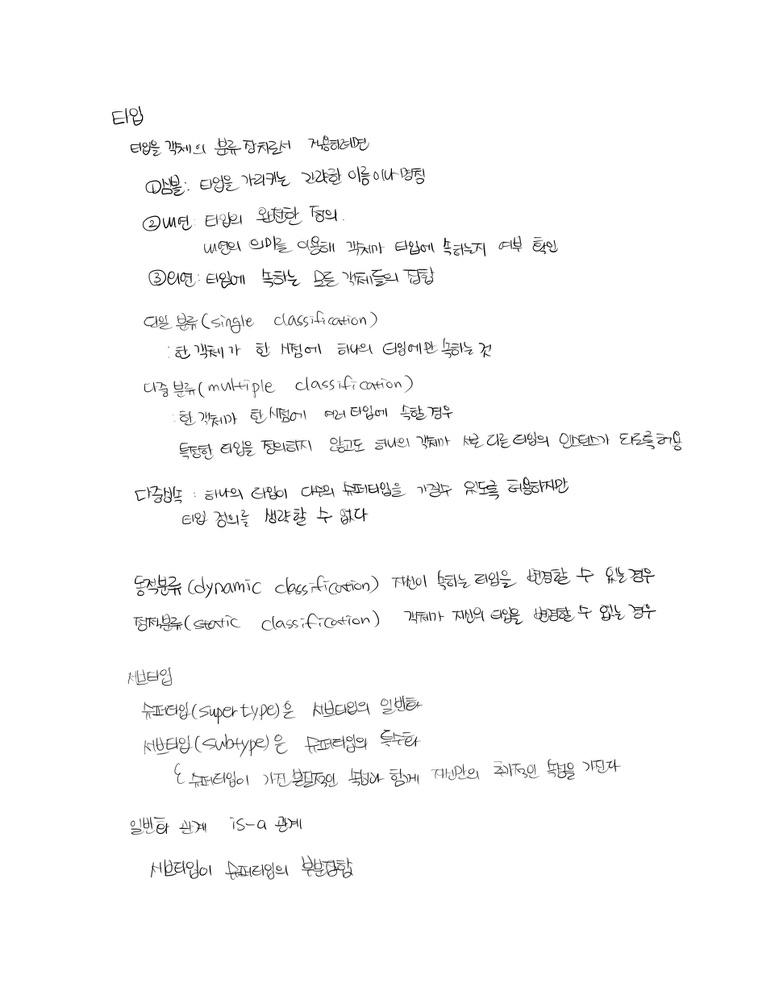 타입
타입을 객체의 분류 장치로서 적용하려면
①심볼: 타입을 가리키는 간략한 이름이나 명칭
②내연: 타입의 완전한 정의.
내연의 의미를 이용해 객체가 타입에 속하는지 여부 확인
③외연: 타입에 속하는 모든 객체들의 집합
단일 분류(single classification)
: 한 객체가 한 시점에 하나의 타입에만 속하는 것
다중 분류(multiple classification)
: 한 객체가 한 시점에 여러 타입에 속할 경우
특정한 타입을 정의하지 않고도 하나의 객체가 서로 다른 타입의 인스턴스가 되도록 허용
다중상속 : 하나의 타입이 다수의 슈퍼타입을 가질수 있도록 허용하지만
타입 정의를 생략할 수 없다
동적분류(dynamic classification) 자신이 속하는 타입을 변경할 수 있는 경우
정적분류(static classification) 객체가 자신의 타입을 변경할 수 없는 경우
서브타입
슈퍼타입(supertype)은 서브타입의 일반화
서브타입(subtype)은 슈퍼타입의 특수화
슈퍼타입이 가진 본질적인 속성과 함께 자신만의 추가적인 속성을 가진다
일반화 관계 is-a 관계
서브타입이 슈퍼타입의 부분집합